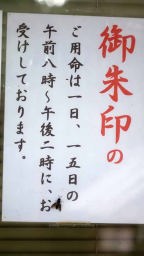 御朱印の
ご用命は一日、一五日の
午前八時～午後二時に、お
受けしております。